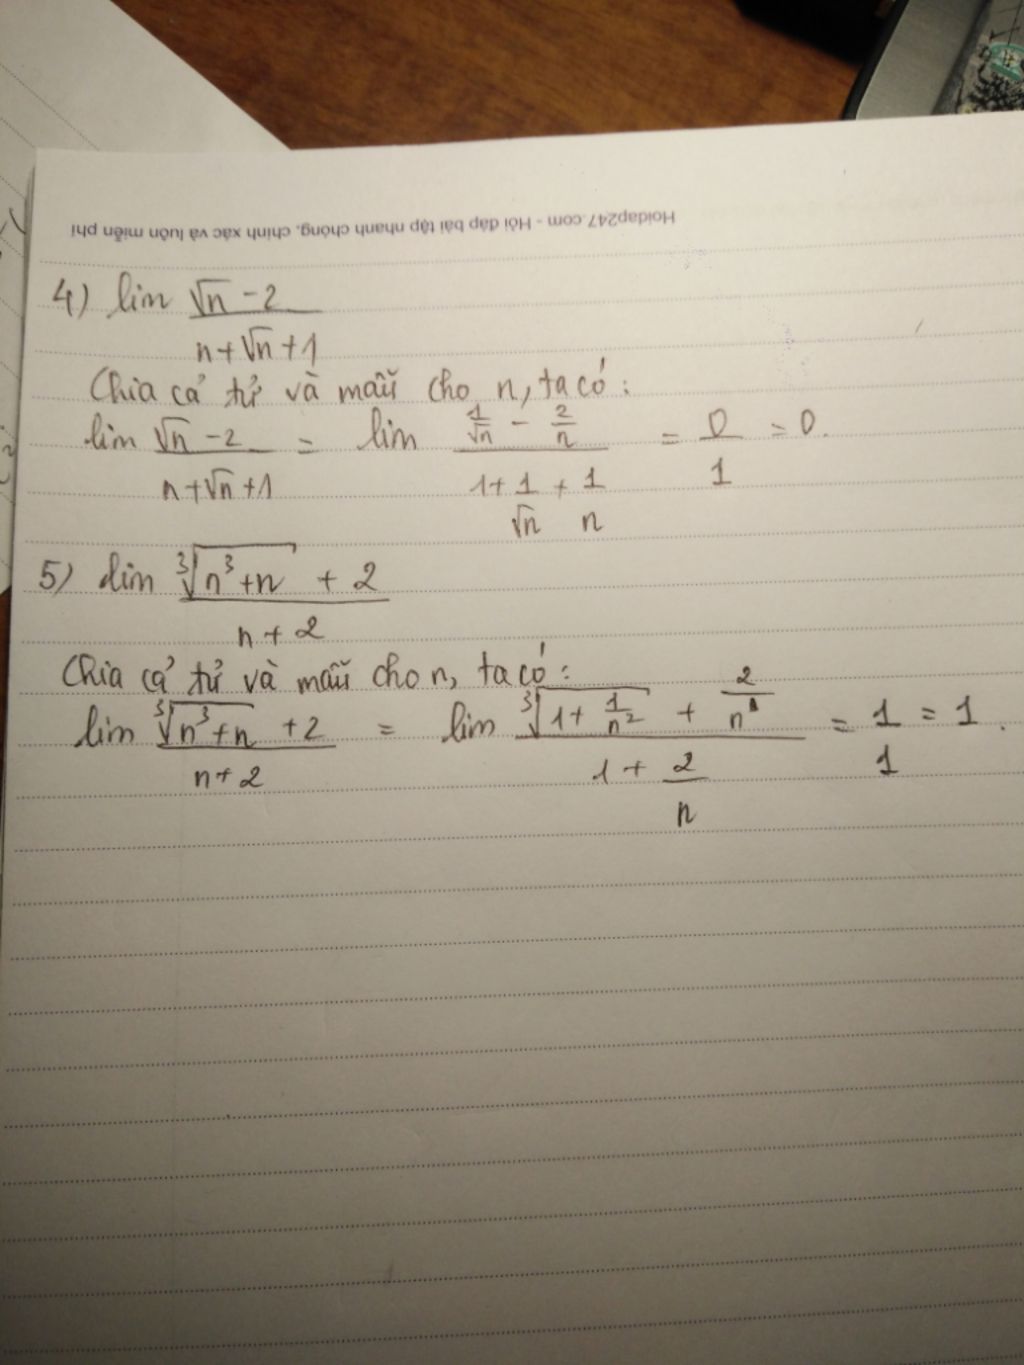 Hoidap247.com - Hỏi đáp bài tập nhanh chóng, chính xác và luôn miễn phí
4) lim (√n - 2) / (n + √n + 1)
Chia cả tử và mẫu cho n, ta có:
lim (√n - 2) / (n + √n + 1) = lim (1/√n - 2/n) / (1 + 1/√n + 1/n) = 0/1 = 0.
5) lim (∛(n³ + n) + 2) / (n + 2)
Chia cả tử và mẫu cho n, ta có:
lim (∛(n³ + n) + 2) / (n + 2) = lim (∛(1 + 1/n²) + 2/n) / (1 + 2/n) = 1/1 = 1.